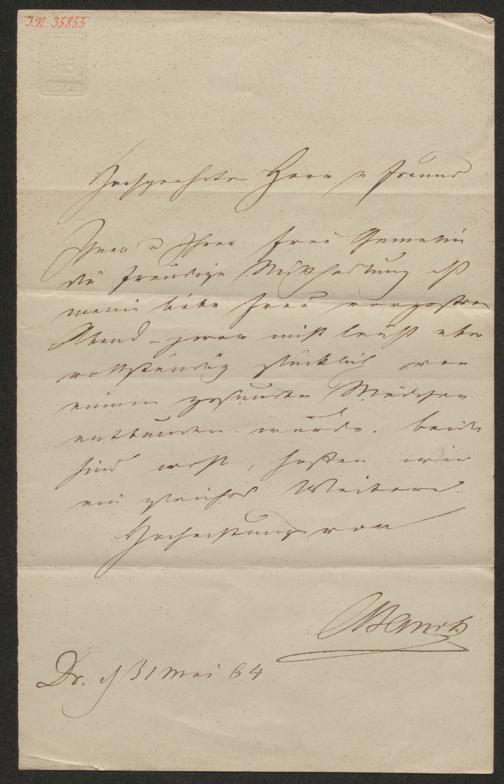 I.N. 35855
Hochgeehrter Herr u Freund
Ihnen u Ihrer Frau Gemalin
die freudige Mittheilung daß
meine liebe Frau vorgestern
Abend – zwar nicht leicht aber
vollständig glücklich von
einem gesunden Mädchen
entbunden wurde. beide
sind wohl, hoffen wir
ein gleiches Weitere.
Hochachtungsvoll
CBanck
Dr. d 31 Mai 64